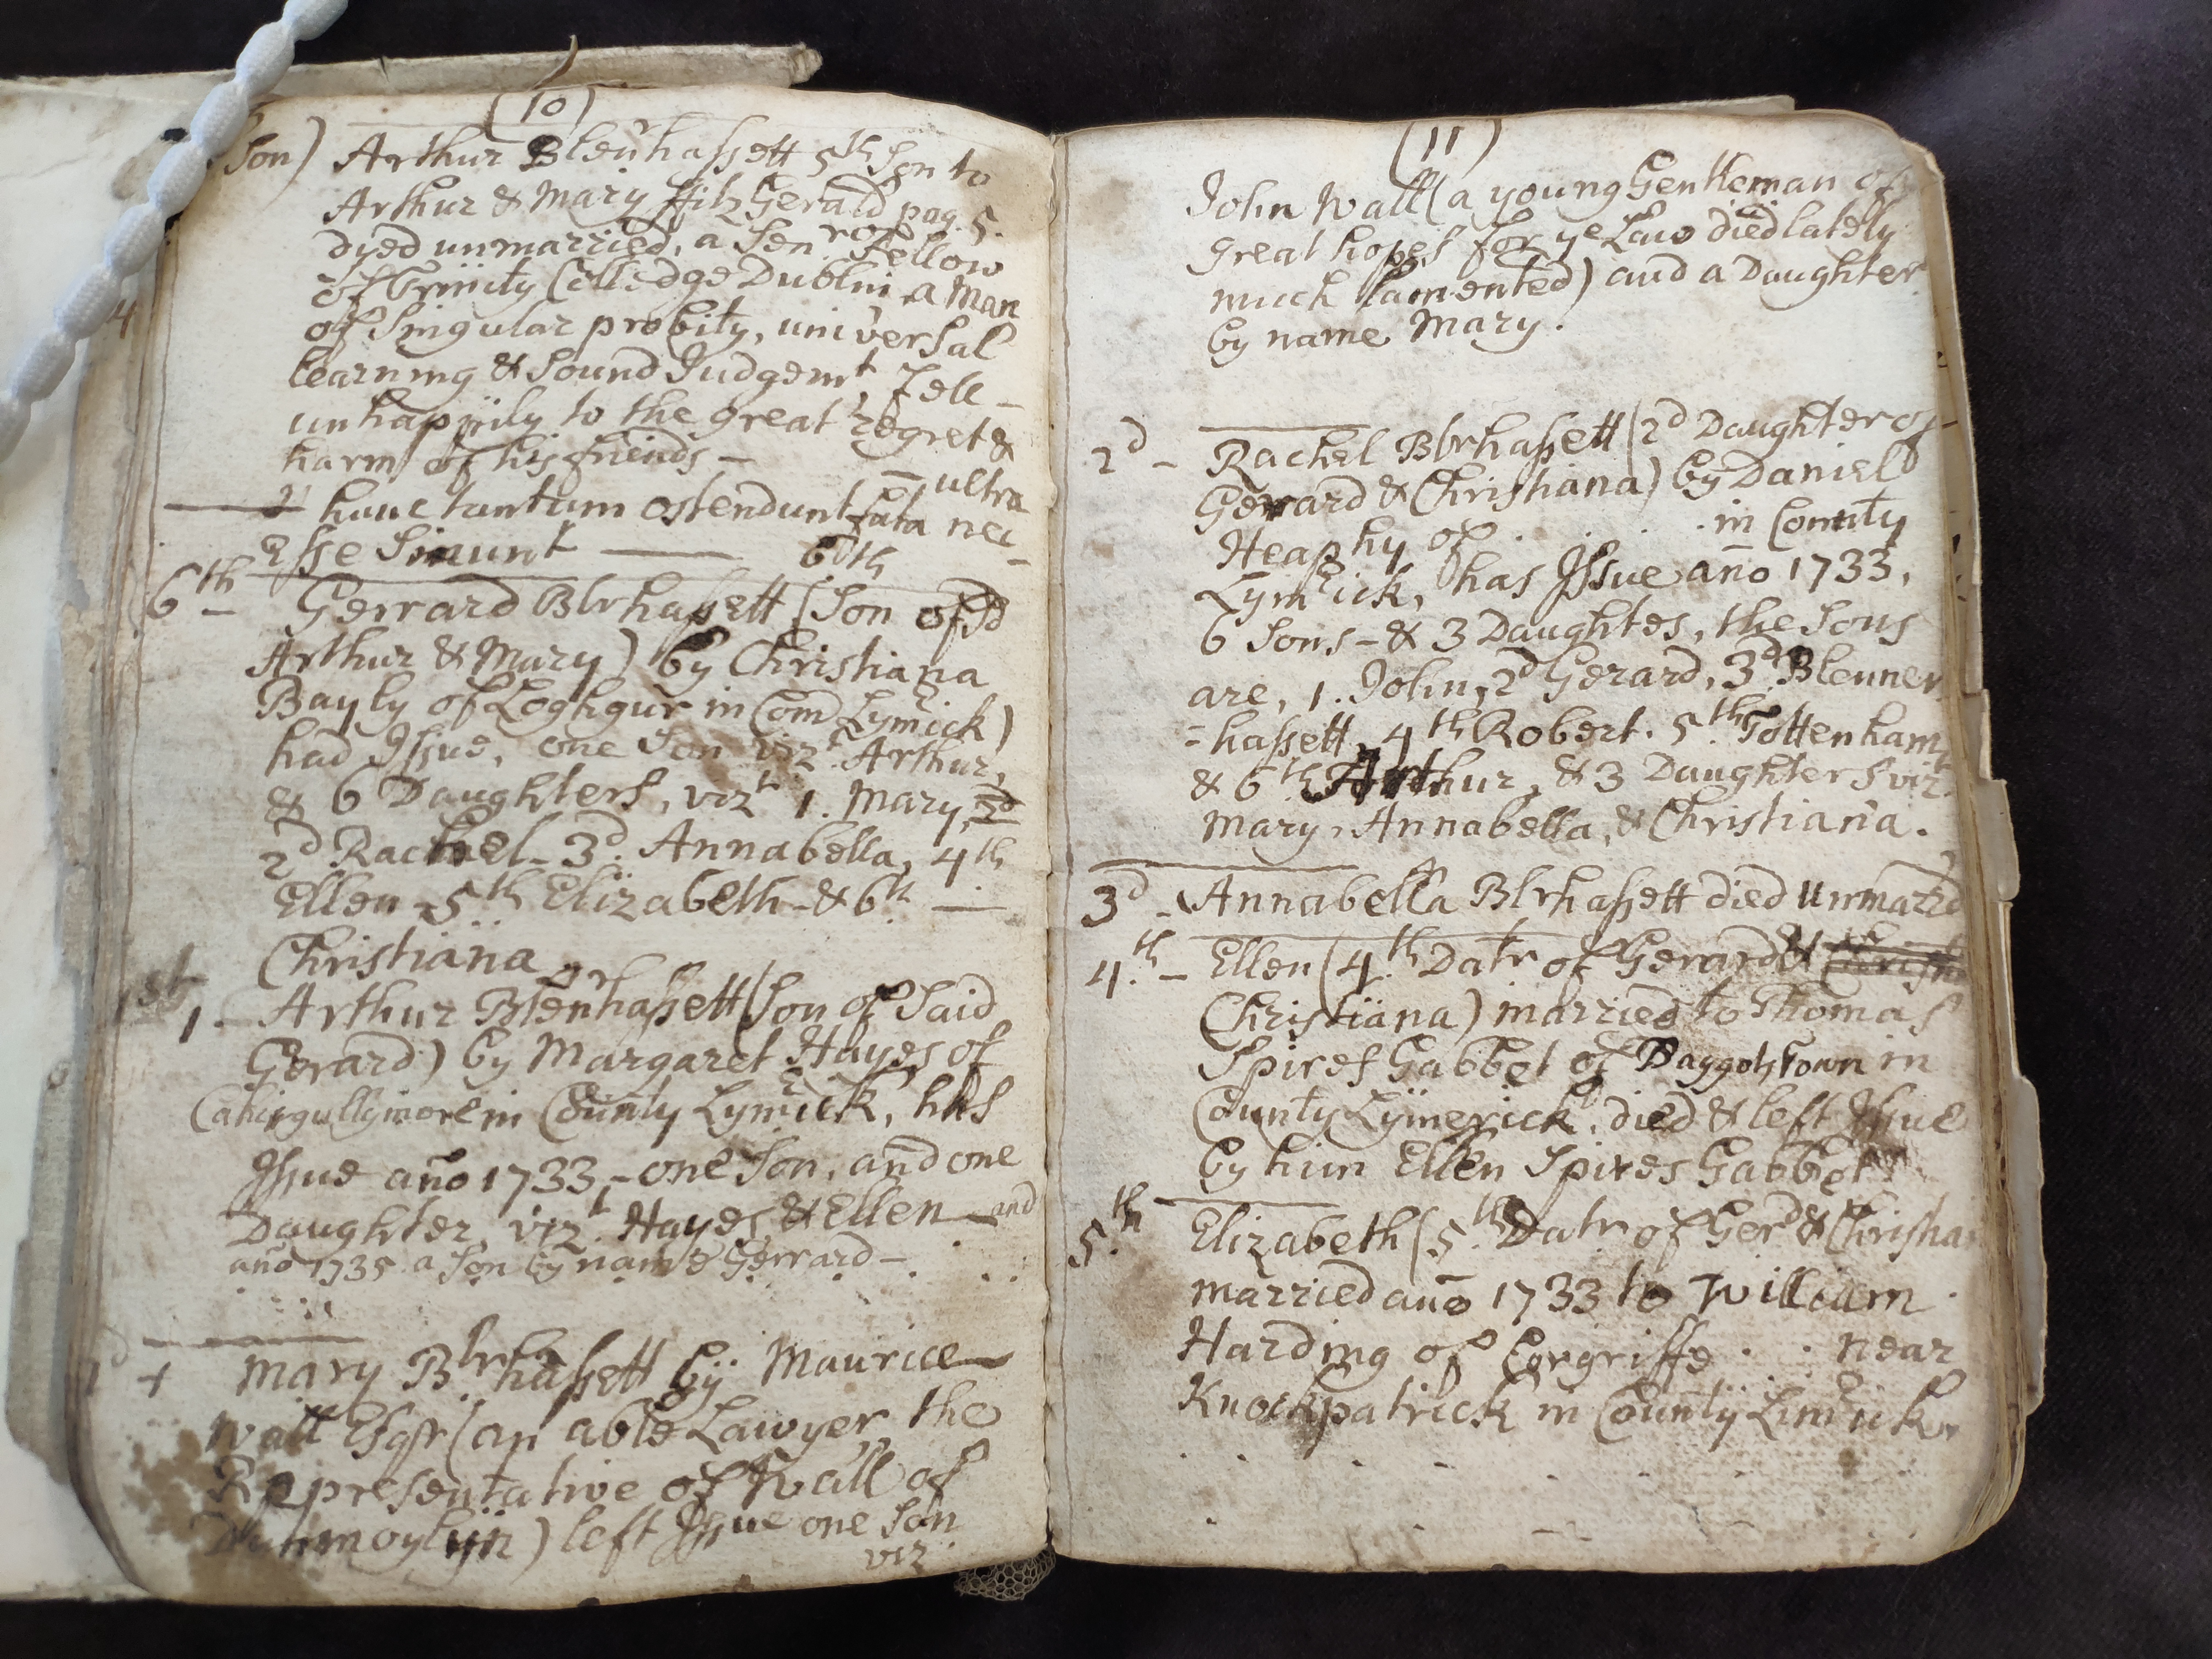 (10)
Son) Arthur Blen̄hassett 5th Son to
Arthur & Mary ffitzGerald pag. 5.
dyed unmarried, a Senr Fellow
of Trinity Colledge Dublin, a Man
of Singular probity, universal
learning & Sound Judgemt, fell
unhappily to the great regret &
harm of his friends –
hunc tantum ostendunt fata nec ultra
Esse Sinunt —— 6th
6th – Gerrard Blrhassett (Son of sd
Arthur & Mary) by Christiana
Bayly of Loghgur in Com Lymrick)
had Issue, one Son vizt. Arthur,
& 6 Daughters, vizt 1. Mary,
2d Rachel – 3d. Annabella, 4th
Ellen – 5th Elizabeth – & 6th ——
Christiana
1st
1 – Arthur Blenrhassett (Son of Said
Gerard) by Margaret Hayes of
Cahirgullymore in County Lymrick, has
Issue ano 1733, – one Son, and one
Daughter, vizt. Hayes & Ellen – and
ano 1735 a Son by name Gerrard – .
Mary Blrhassett by Maurice
Wall Esqr (an able Lawyer, the
Representative of Wall of
Dunmoylin) left Issue one Son
viz
(11)
John Wall (a young Gentleman of
great hopes for ye Law died lately
much lamented) and a Daughter
by name Mary.
2d – Rachel Blrhassett (2d Daughter of
Gerrard & Christiana) by Daniel
Heaphy of . . . . in County
Lymrick, has Issue ano 1733,
6 Sons – & 3 Daughtes, the Sons
are, 1. John, 2d Gerard, 3d. Blenner
-hassett, 4th Robert. 5th Tottenham
& 6th Arthur, & 3 Daughters vizt
Mary, Annabella, & Christiana.
3d – Annabella Blrhassett died Unmarid
4.th – Ellen (4.th Datr of Gerard &
Christiana) married to Thomas
Spires Gabbet of Baggotstown in
County Lymerick, died & left Issue
by him Ellen Spires Gabbet
5.th Elizabeth (5.th Datr of Gerd & Christia
married ano 1733 to William
Harding of Corgriffe . . near
Knockpatrick in County Limrick.